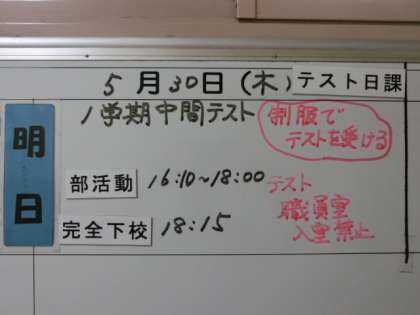 5月30日(木)テスト日課
明日
1学期中間テスト
制服で
テストを受ける
部活動 16:10~18:00
完全下校 18:15
テスト
職員室
入室禁止